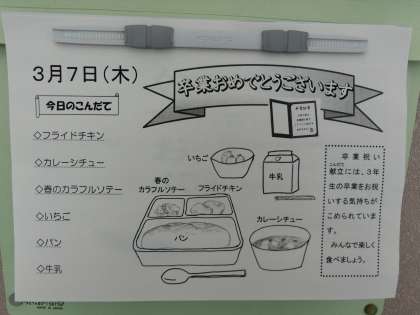 3月7日(木)
卒業おめでとうございます
今日のこんだて
◇フライドチキン
◇カレーシチュー
◇春のカラフルソテー
◇いちご
◇パン
◇牛乳
いちご
牛乳
春の
カラフルソテー
フライドチキン
カレーシチュー
パン
卒業祝い
献立には、3年
こんだて
生の卒業をお祝
いする気持ちが
こめられていま
す。
みんなで楽しく
食べましょう。